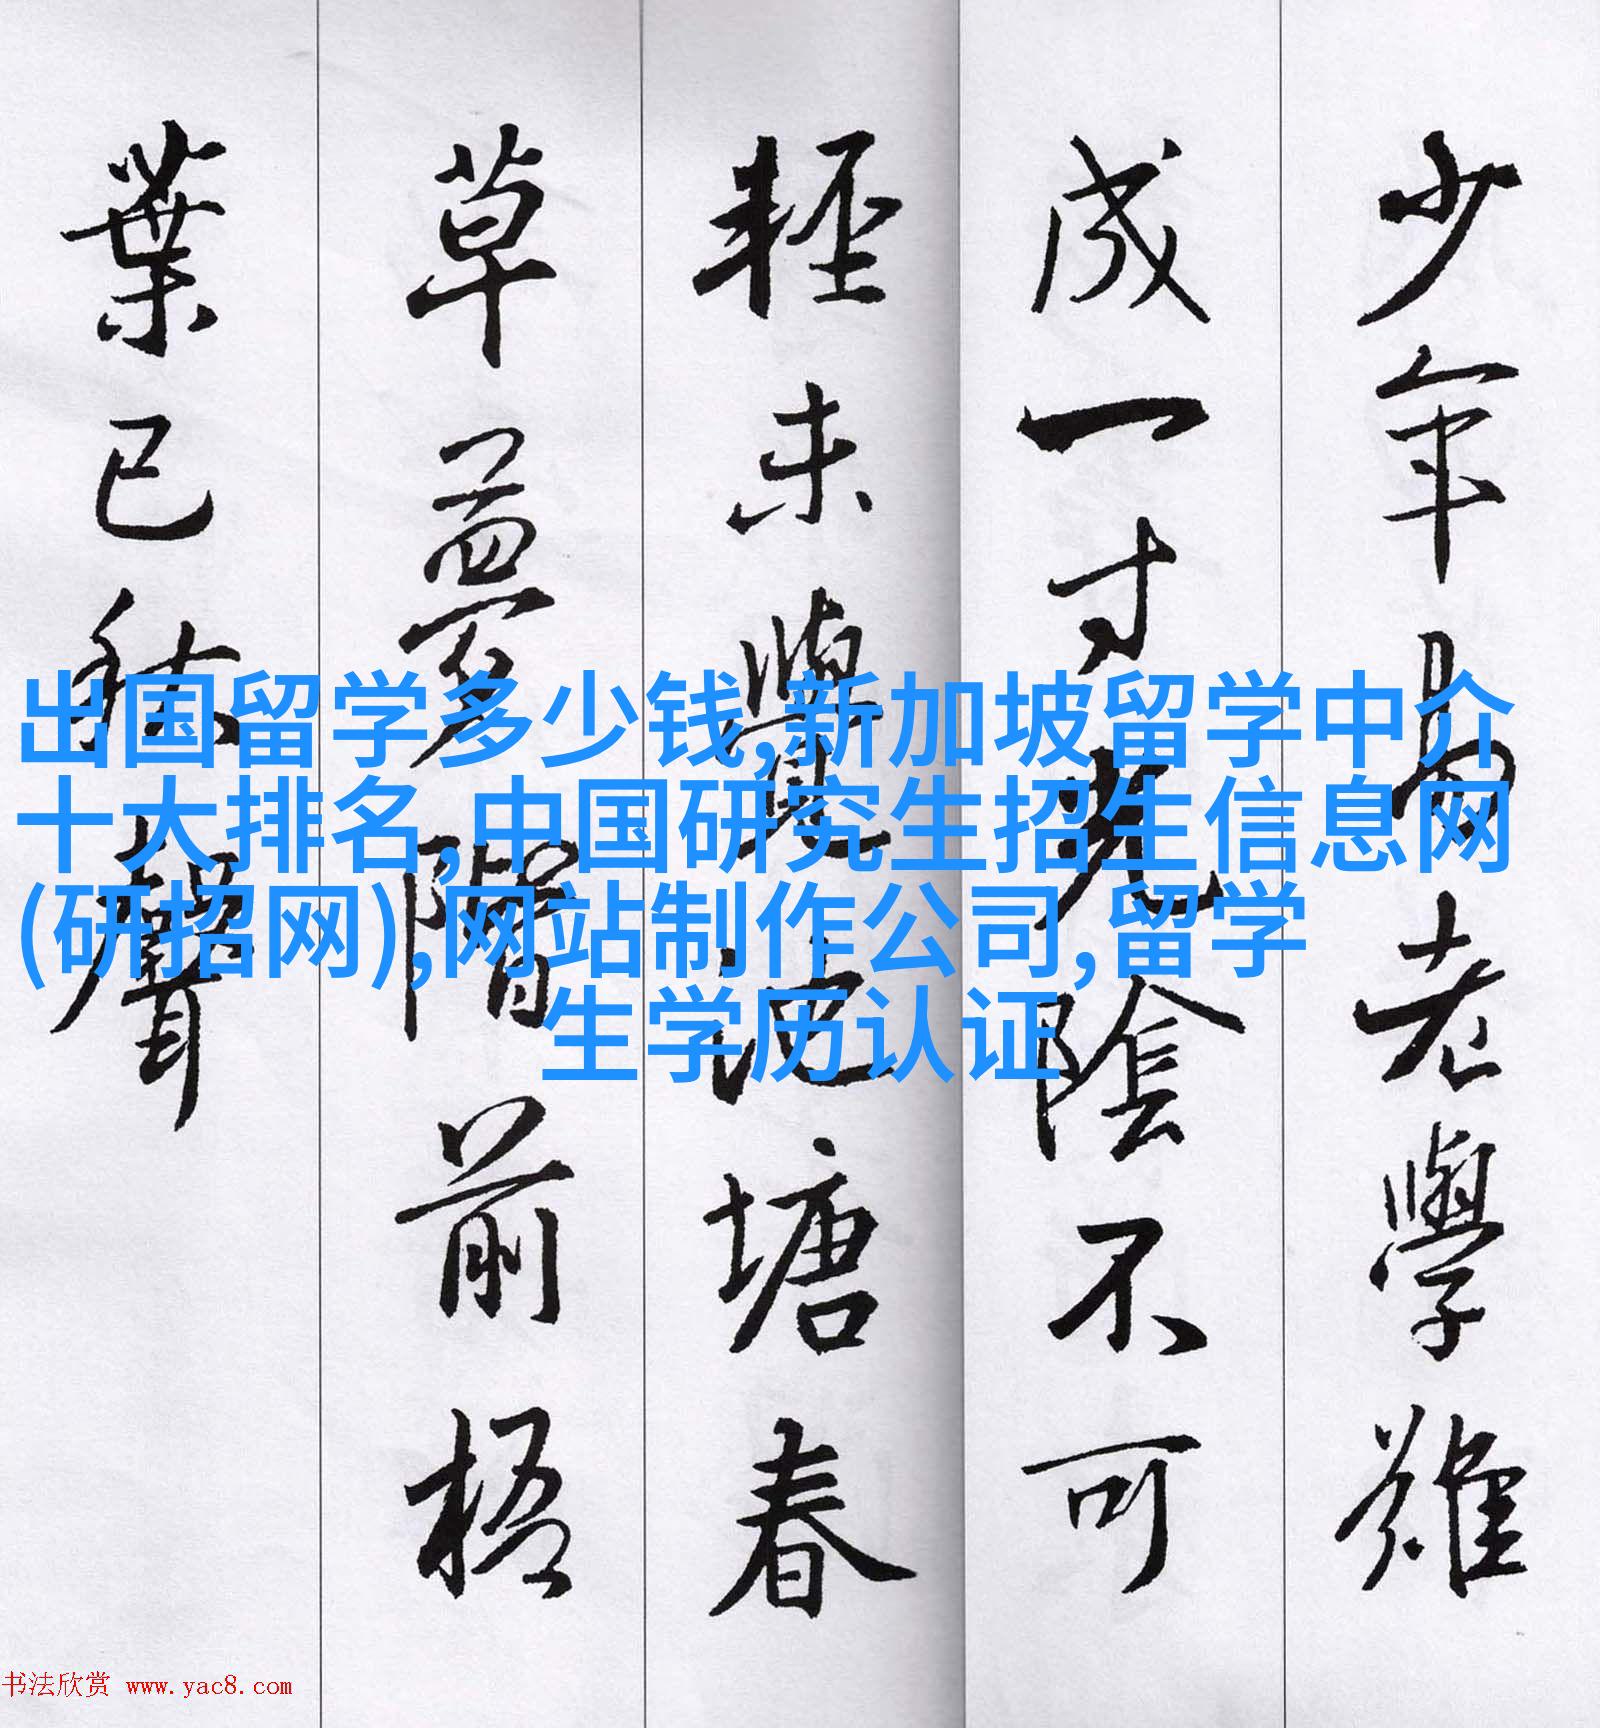 少年易老學難
成一寸光陰不可
輕未覺池塘春
草夢階前梧
葉已秋聲
出国留学多少钱,新加坡留学中介
十大排名,中国研究生招生信息网
(研招网),网站制作公司,留学
生学历认证
书法欣赏 www.yac8.com